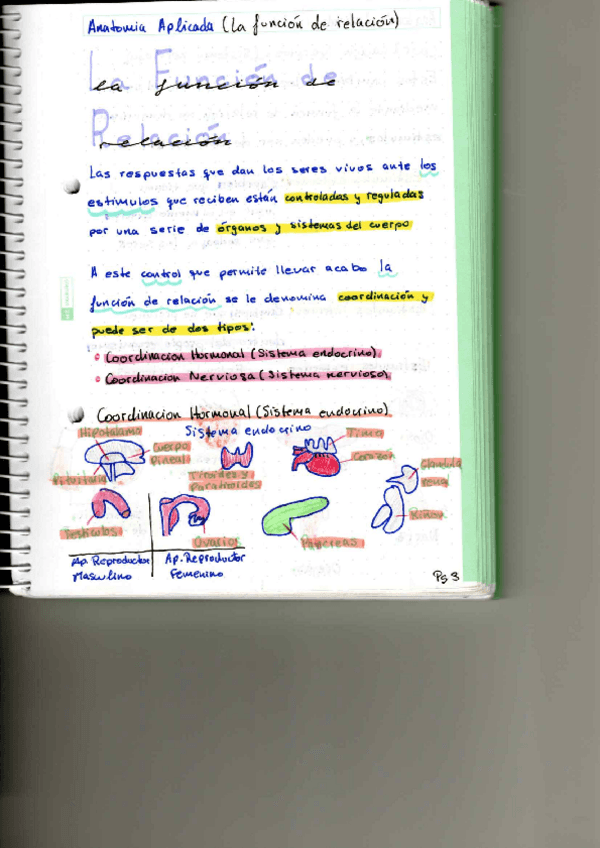 Anatomia Aplicada (La función de relación)
La Función de
la función de
Relación
relación
Las respuestas que dan los seres vivos ante los
estímulos que reciben están controladas y reguladas
por una serie de órganos y sistemas del cuerpo
A este control que permite llevar acabo la
función de relación se le denomina coordinación y
puede ser de dos tipos:
Coordinacion Hormonal (Sistema endocrino).
Coordinación Nerviosa (Sistema nervioso)
Coordinacion Hormonal (Sistema endocrino)
Sistema endocrino
Hipotalamo
Cuerpo
Pineal
Pituitaria
Tiroides y
Paratiroides
Timo
Corazon
Glandula
renal
Riñon
Testiculos
Ovarios
Pancreas
Ap. Reproductor
Masculino
Ap. Reproductor
Femenino
Pg 3